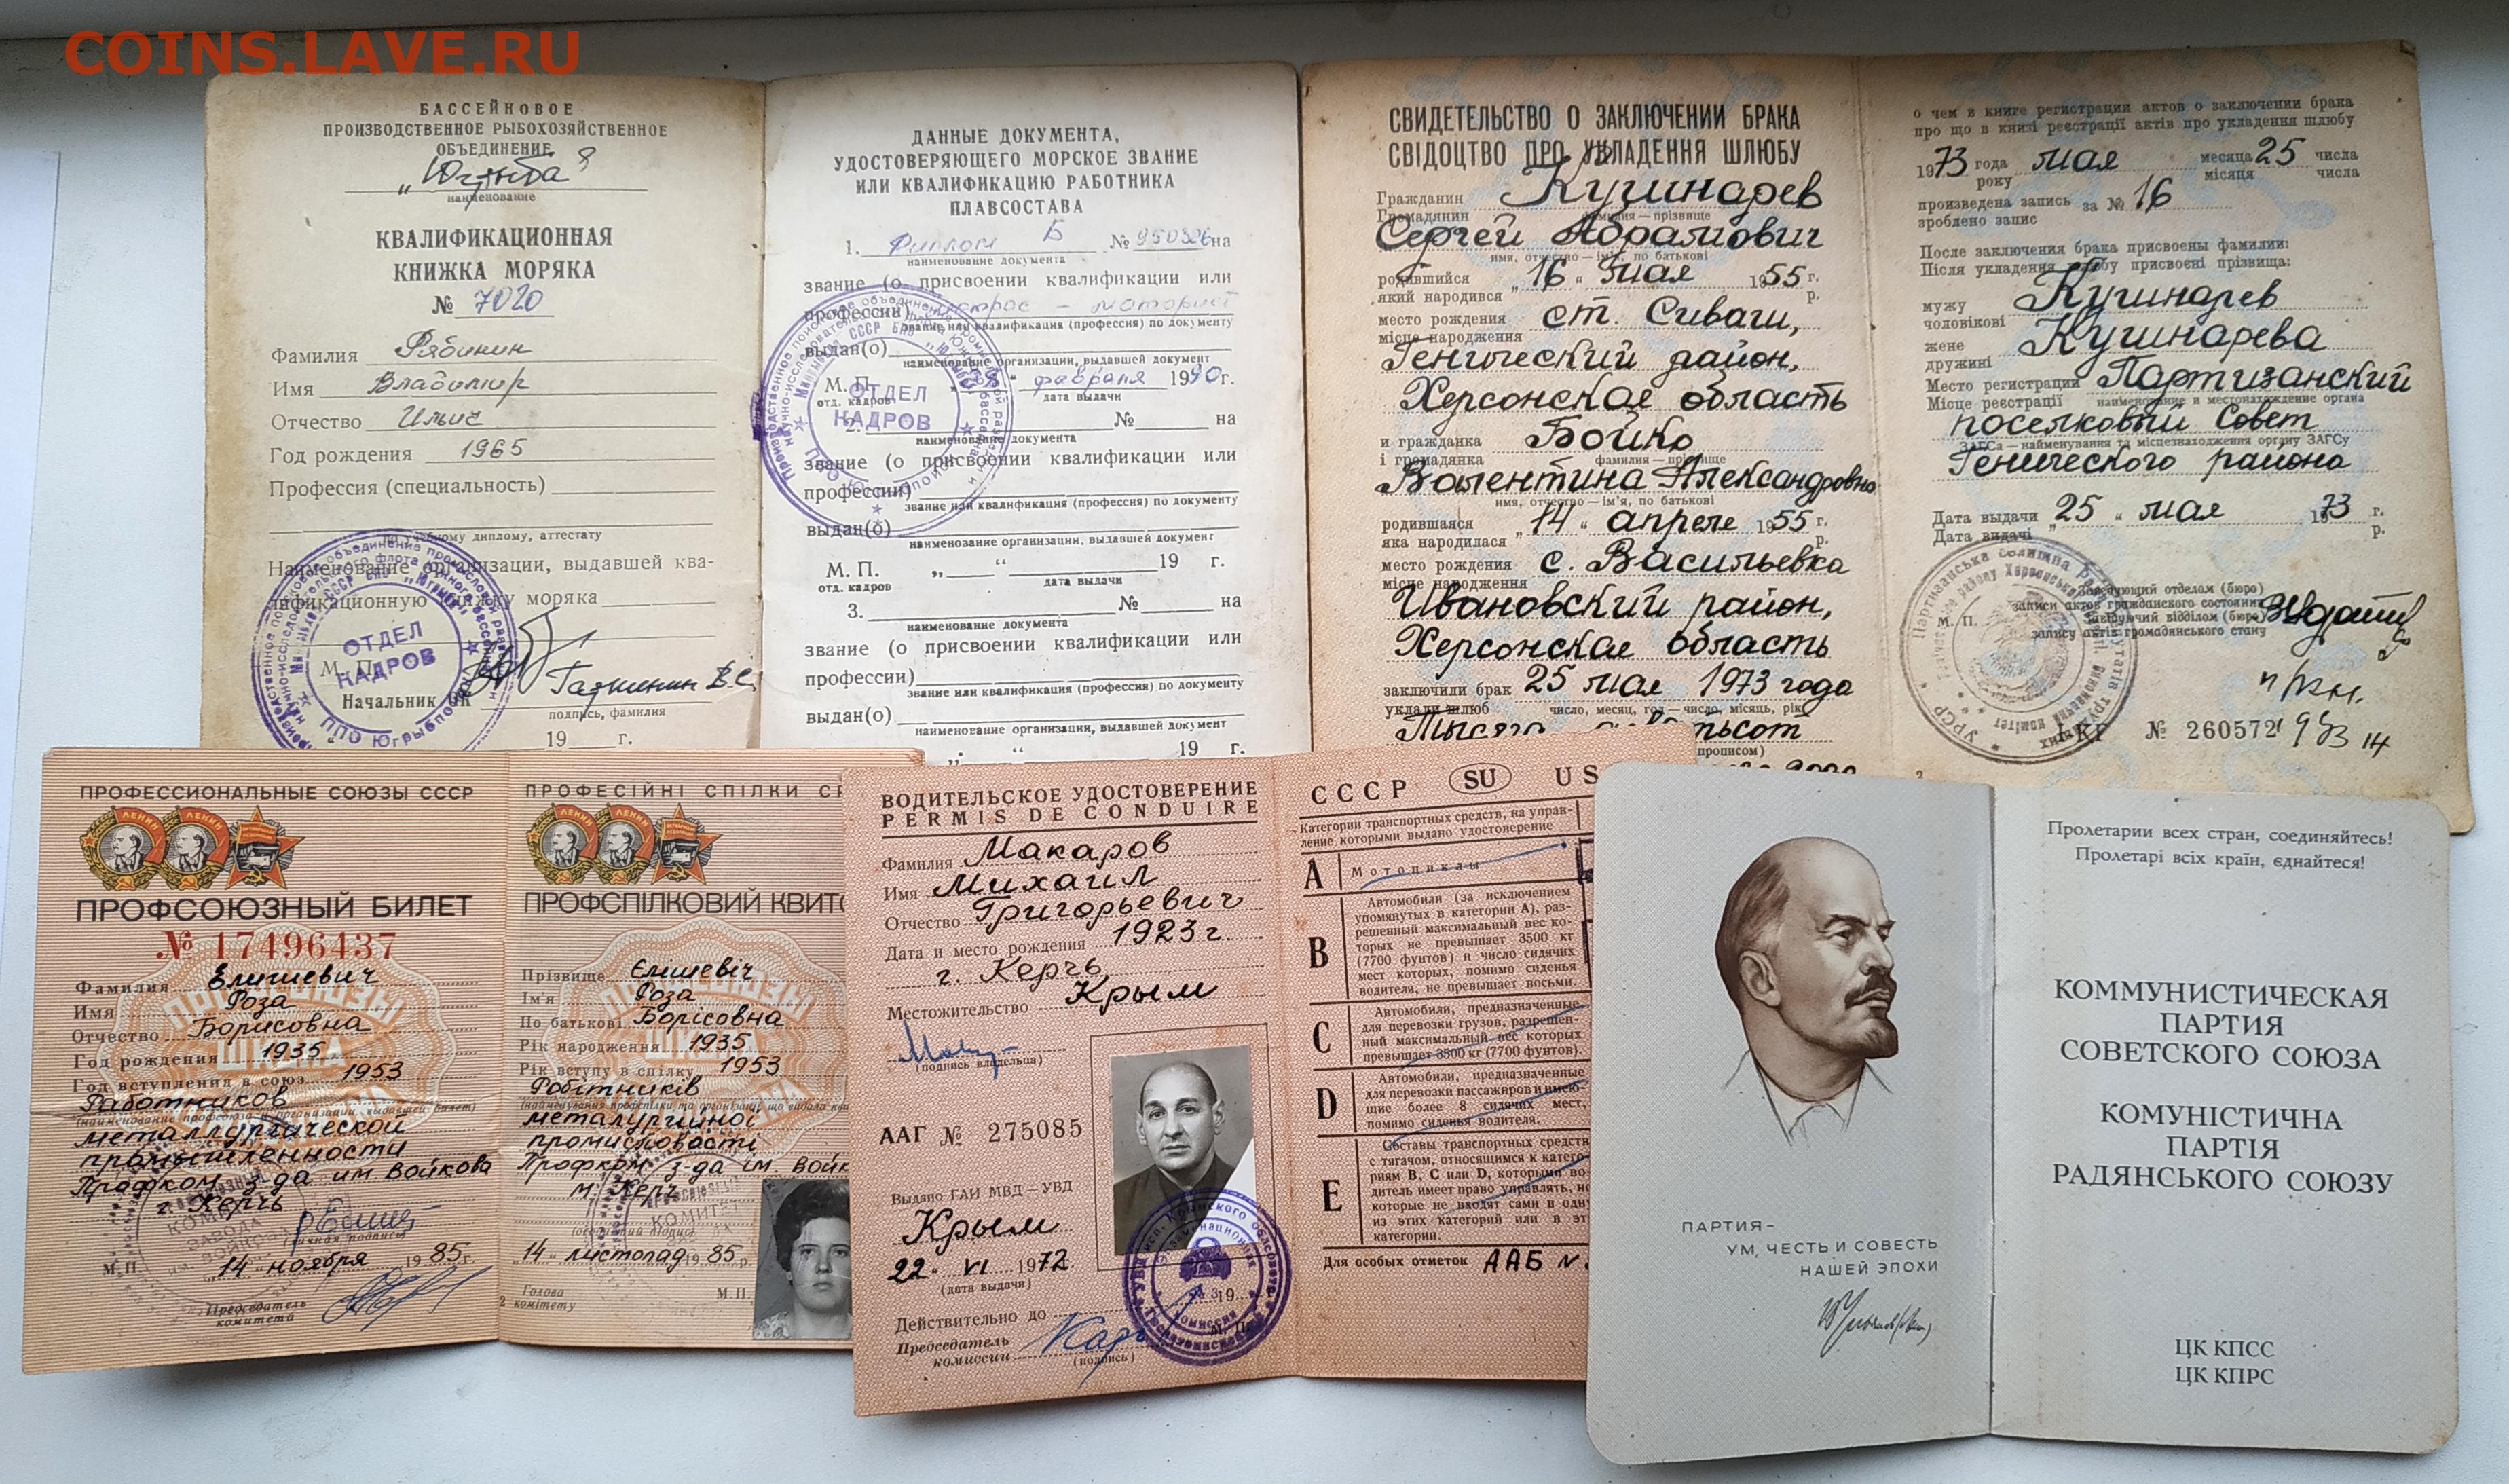 COINS.LAVE.RU
БАССЕЙНОВОЕ
ПРОИЗВОДСТВЕННОЕ РЫБОХОЗЯЙСТВЕННОЕ
ОБЪЕДИНЕНИЕ
„Югрыба"
наименование
КВАЛИФИКАЦИОННАЯ
КНИЖКА МОРЯКА
№ 7020
Фамилия Рябинин
Имя Владимир
Отчество Ильич
Год рождения 1965
Профессия (специальность)
по учебному диплому, аттестату
Наименование организации, выдавшей ква-
лификационную книжку моряка
ОТДЕЛ
КАДРОВ
М. П.
Начальник ОК
подпись, фамилия
19 г.
ДАННЫЕ ДОКУМЕНТА,
УДОСТОВЕРЯЮЩЕГО МОРСКОЕ ЗВАНИЕ
ИЛИ КВАЛИФИКАЦИЮ РАБОТНИКА
ПЛАВСОСТАВА
1. Диплом Б № на
наименование документа
звание (о присвоении квалификации или
профессии)
звание или квалификация (профессия) по документу
выдан(о)
наименование организации, выдавшей документ
М. П. февраля 1990г.
отд. кадров дата выдачи
ОТДЕЛ
КАДРОВ
2. № на
наименование документа
звание (о присвоении квалификации или
профессии)
звание или квалификация (профессия) по документу
выдан(о)
наименование организации, выдавшей документ
М. П. „ " 19 г.
отд. кадров дата выдачи
3. № на
наименование документа
звание (о присвоении квалификации или
профессии)
звание или квалификация (профессия) по документу
выдан(о)
наименование организации, выдавшей документ
„ " 19 г.
СВИДЕТЕЛЬСТВО О ЗАКЛЮЧЕНИИ БРАКА
СВІДОЦТВО ПРО УКЛАДЕННЯ ШЛЮБУ
Гражданин Кушнарев
Громадянин фамилия — прізвище
Сергей Абрамович
имя, отчество — ім'я, по батькові
родившийся „16" мая 1955 г.
який народився р.
место рождения ст. Сиваш,
місце народження
Генический район,
Херсонская область
и гражданка Бойко
і громадянка фамилия — прізвище
Валентина Александровна
имя, отчество — ім'я, по батькові
родившаяся „14" апреля 1955 г.
яка народилася р.
место рождения с. Васильевка
місце народження
Ивановский район,
Херсонская область
заключили брак 25 мая 1973 года
уклали шлюб число, месяц, год — число, місяць, рік
Тысяча
прописом)
о чем в книге регистрации актов о заключении брака
про що в книзі реєстрації актів про укладення шлюбу
1973 года мая месяца 25 числа
року місяця числа
произведена запись за № 16
зроблено запис
После заключения брака присвоены фамилии:
Після укладення шлюбу присвоєні прізвища:
мужу Кушнарев
чоловікові
жене Кушнарева
дружині
Место регистрации Партизанский
Місце реєстрації наименование и местонахождение органа
поселковый Совет
ЗАГСа — найменування та місцезнаходження органу ЗАГСу
Генического района
Дата выдачи „25" мая 1973 г.
Дата видачі р.
Заведующий отделом (бюро)
записи актов гражданского состояния
М. П. Завідуючий відділом (бюро)
запису актів громадянського стану
КГ № 260572
ПРОФЕССИОНАЛЬНЫЕ СОЮЗЫ СССР
ПРОФСОЮЗНЫЙ БИЛЕТ
№ 17496437
Фамилия Елишевич
Имя Роза
Отчество Борисовна
Год рождения 1935
Год вступления в союз 1953
Работников
(наименование профсоюза и организации, выдавшей билет)
металлургической
промышленности
Профком з-да им. Войкова
г. Керчь
(личная подпись)
М.П. „14" ноября 1985г.
Председатель
комитета
ПРОФЕСІЙНІ СПІЛКИ
ПРОФСПІЛКОВИЙ КВИТ
Прізвище Єлішевіч
Ім'я Роза
По батькові Борісовна
Рік народження 1935
Рік вступу в спілку 1953
Робітників
металургійної
промисловості
Профком з-да ім. Войк
м. Керч
(особистий підпис)
„14" листопад 1985р.
Голова М.П.
2 комітету
ВОДИТЕЛЬСКОЕ УДОСТОВЕРЕНИЕ
PERMIS DE CONDUIRE
Фамилия Макаров
Имя Михаил
Отчество Григорьевич
Дата и место рождения 1923г.
г. Керчь
Местожительство Крым
(подпись владельца)
ААГ № 275085
Выдано ГАИ МВД—УВД
Крым
22. VI 1972.
(дата выдачи)
Действительно до 19
Председатель
комиссии
(подпись)
СССР SU US
Категории транспортных средств, на управ-
ление которыми выдано удостоверение
A Мотоциклы
B Автомобили (за исключением
упомянутых в категории А), раз-
решенный максимальный вес ко-
торых не превышает 3500 кг
(7700 фунтов) и число сидячих
мест которых, помимо сиденья
водителя, не превышает восьми.
C Автомобили, предназначенные
для перевозки грузов, разрешен-
ный максимальный вес которых
превышает 3500 кг (7700 фунтов).
D Автомобили, предназначенные
для перевозки пассажиров и имею-
щие более 8 сидячих мест,
помимо сиденья водителя.
E Составы транспортных средств
с тягачом, относящимся к катего-
риям В, С или D, которыми во-
дитель имеет право управлять, но
которые не входят сами в одну
из этих категорий или в эт
категории.
Для особых отметок ААБ
ПАРТИЯ –
УМ, ЧЕСТЬ И СОВЕСТЬ
НАШЕЙ ЭПОХИ
Пролетарии всех стран, соединяйтесь!
Пролетарі всіх країн, єднайтеся!
КОММУНИСТИЧЕСКАЯ
ПАРТИЯ
СОВЕТСКОГО СОЮЗА
КОМУНІСТИЧНА
ПАРТІЯ
РАДЯНСЬКОГО СОЮЗУ
ЦК КПСС
ЦК КПРС